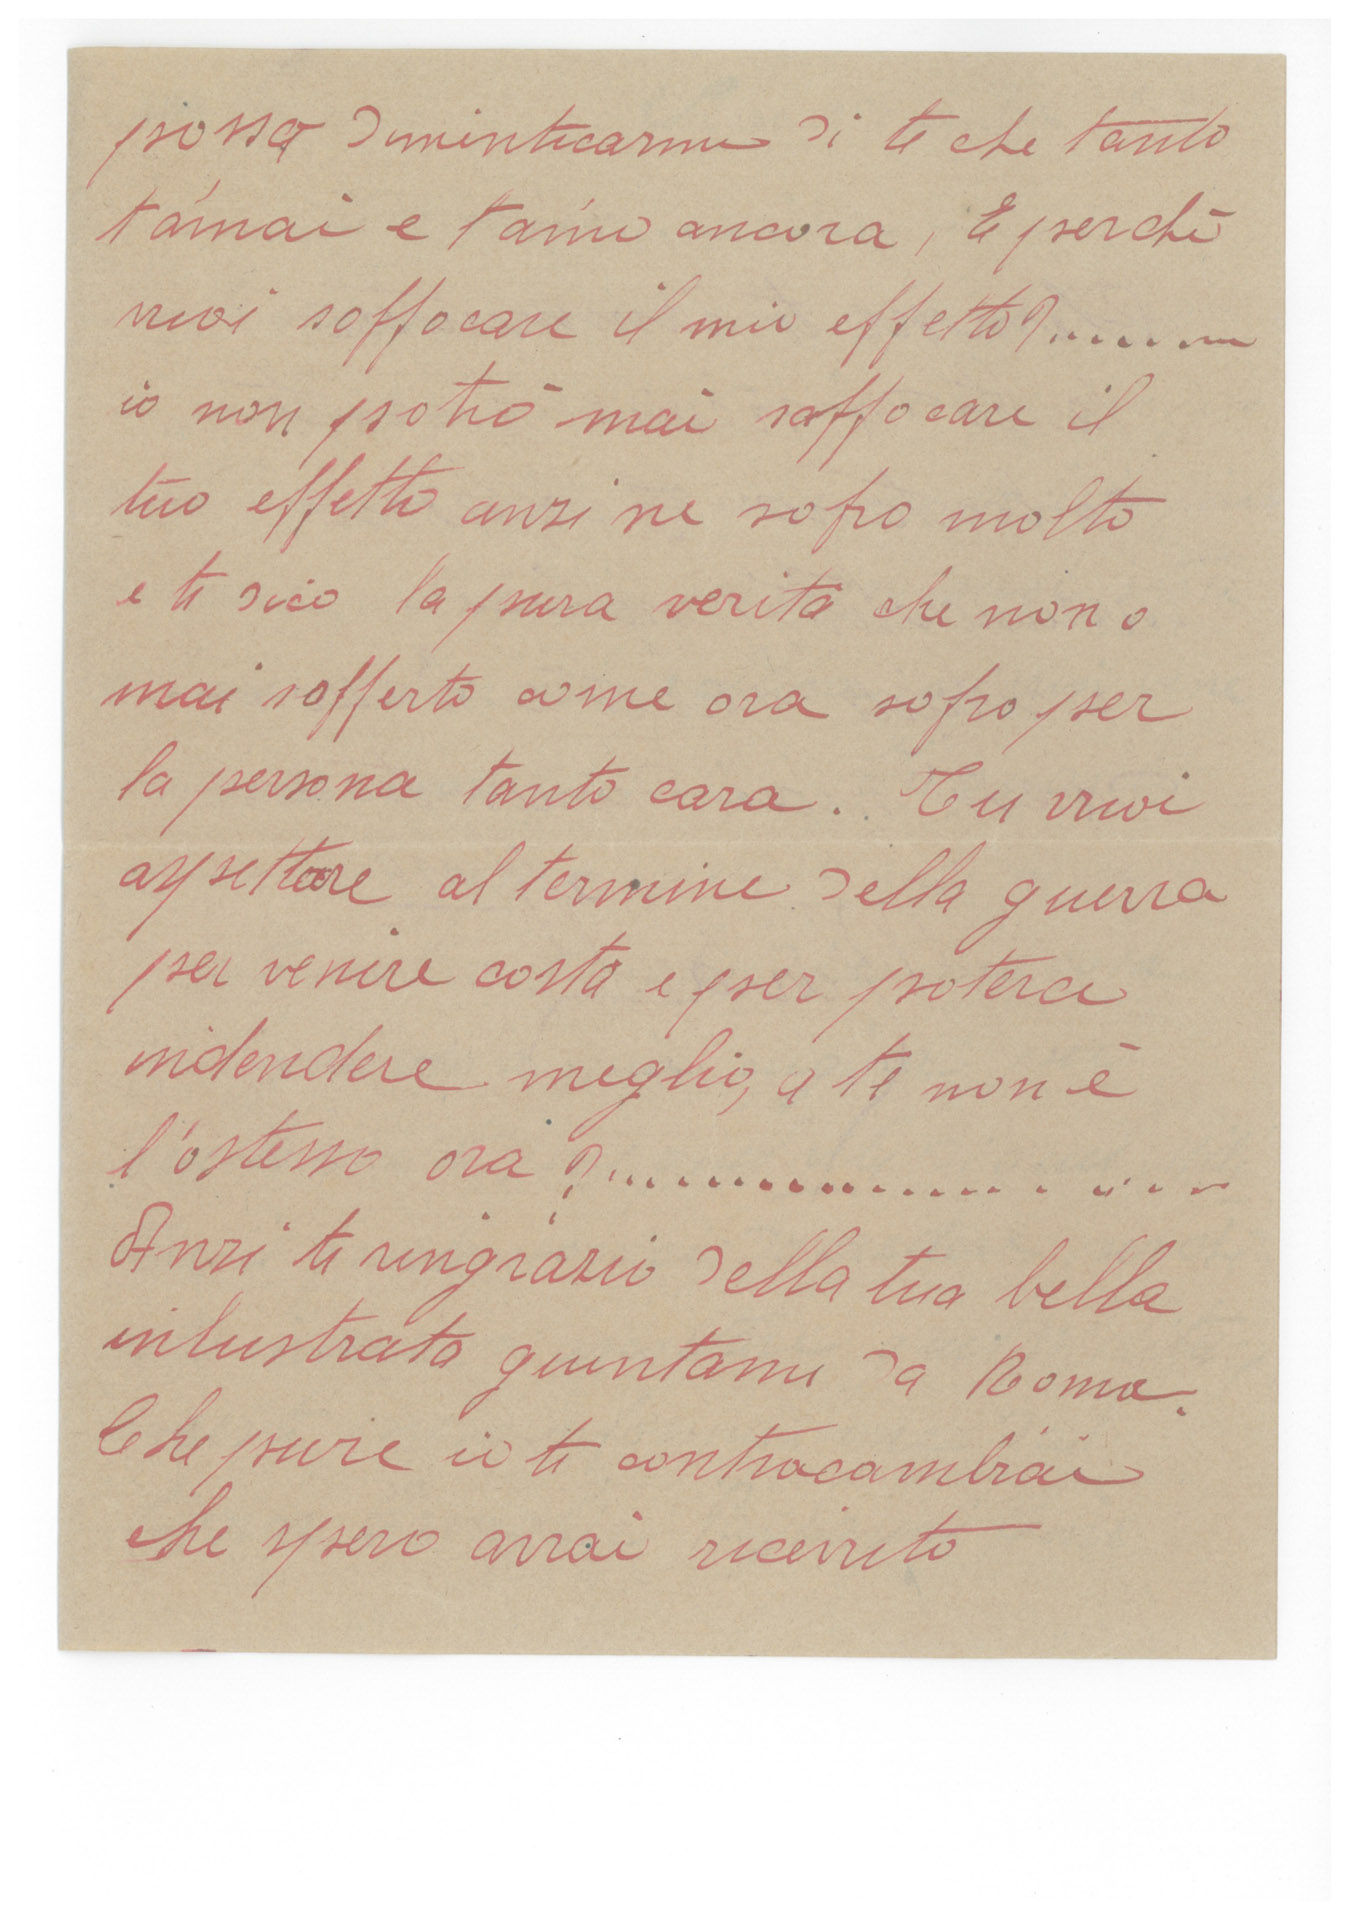 possa diminticarmi di te che tanto
t'amai e t'amo ancora, E perchè
vuoi soffocare il mio effetto?.......
io non potrò mai soffocare il
tuo effetto anzi ne sofro molto
e ti dico la pura verità che non o
mai sofferto come ora sofro per
la persona tanto cara. Tu vuoi
aspettare al termine della guerra
per venire costà e per poterci
indendere meglio, a te non è
l'ostesso ora?......................
Anzi ti ringrazio della tua bella
inlustrata giuntami da Roma.
Che pure io ti contracambiai
che spero avrai ricevuto